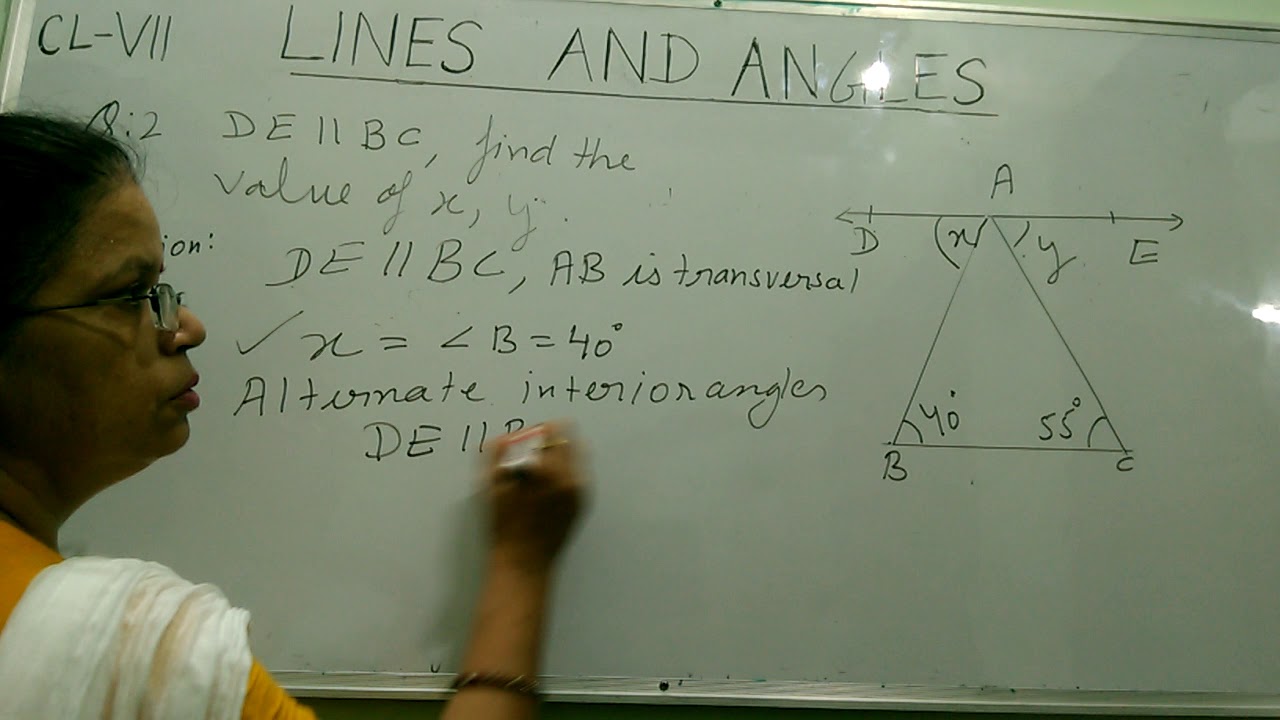 CL-VII LINES AND ANGLES
Q:2 DE || BC, find the
value of x, y.
ion:
DE // BC, AB is transversal
✓ x = ∠B = 40°
Alternate interior angles
DE || B
A
D x y E
40° 55°
B C